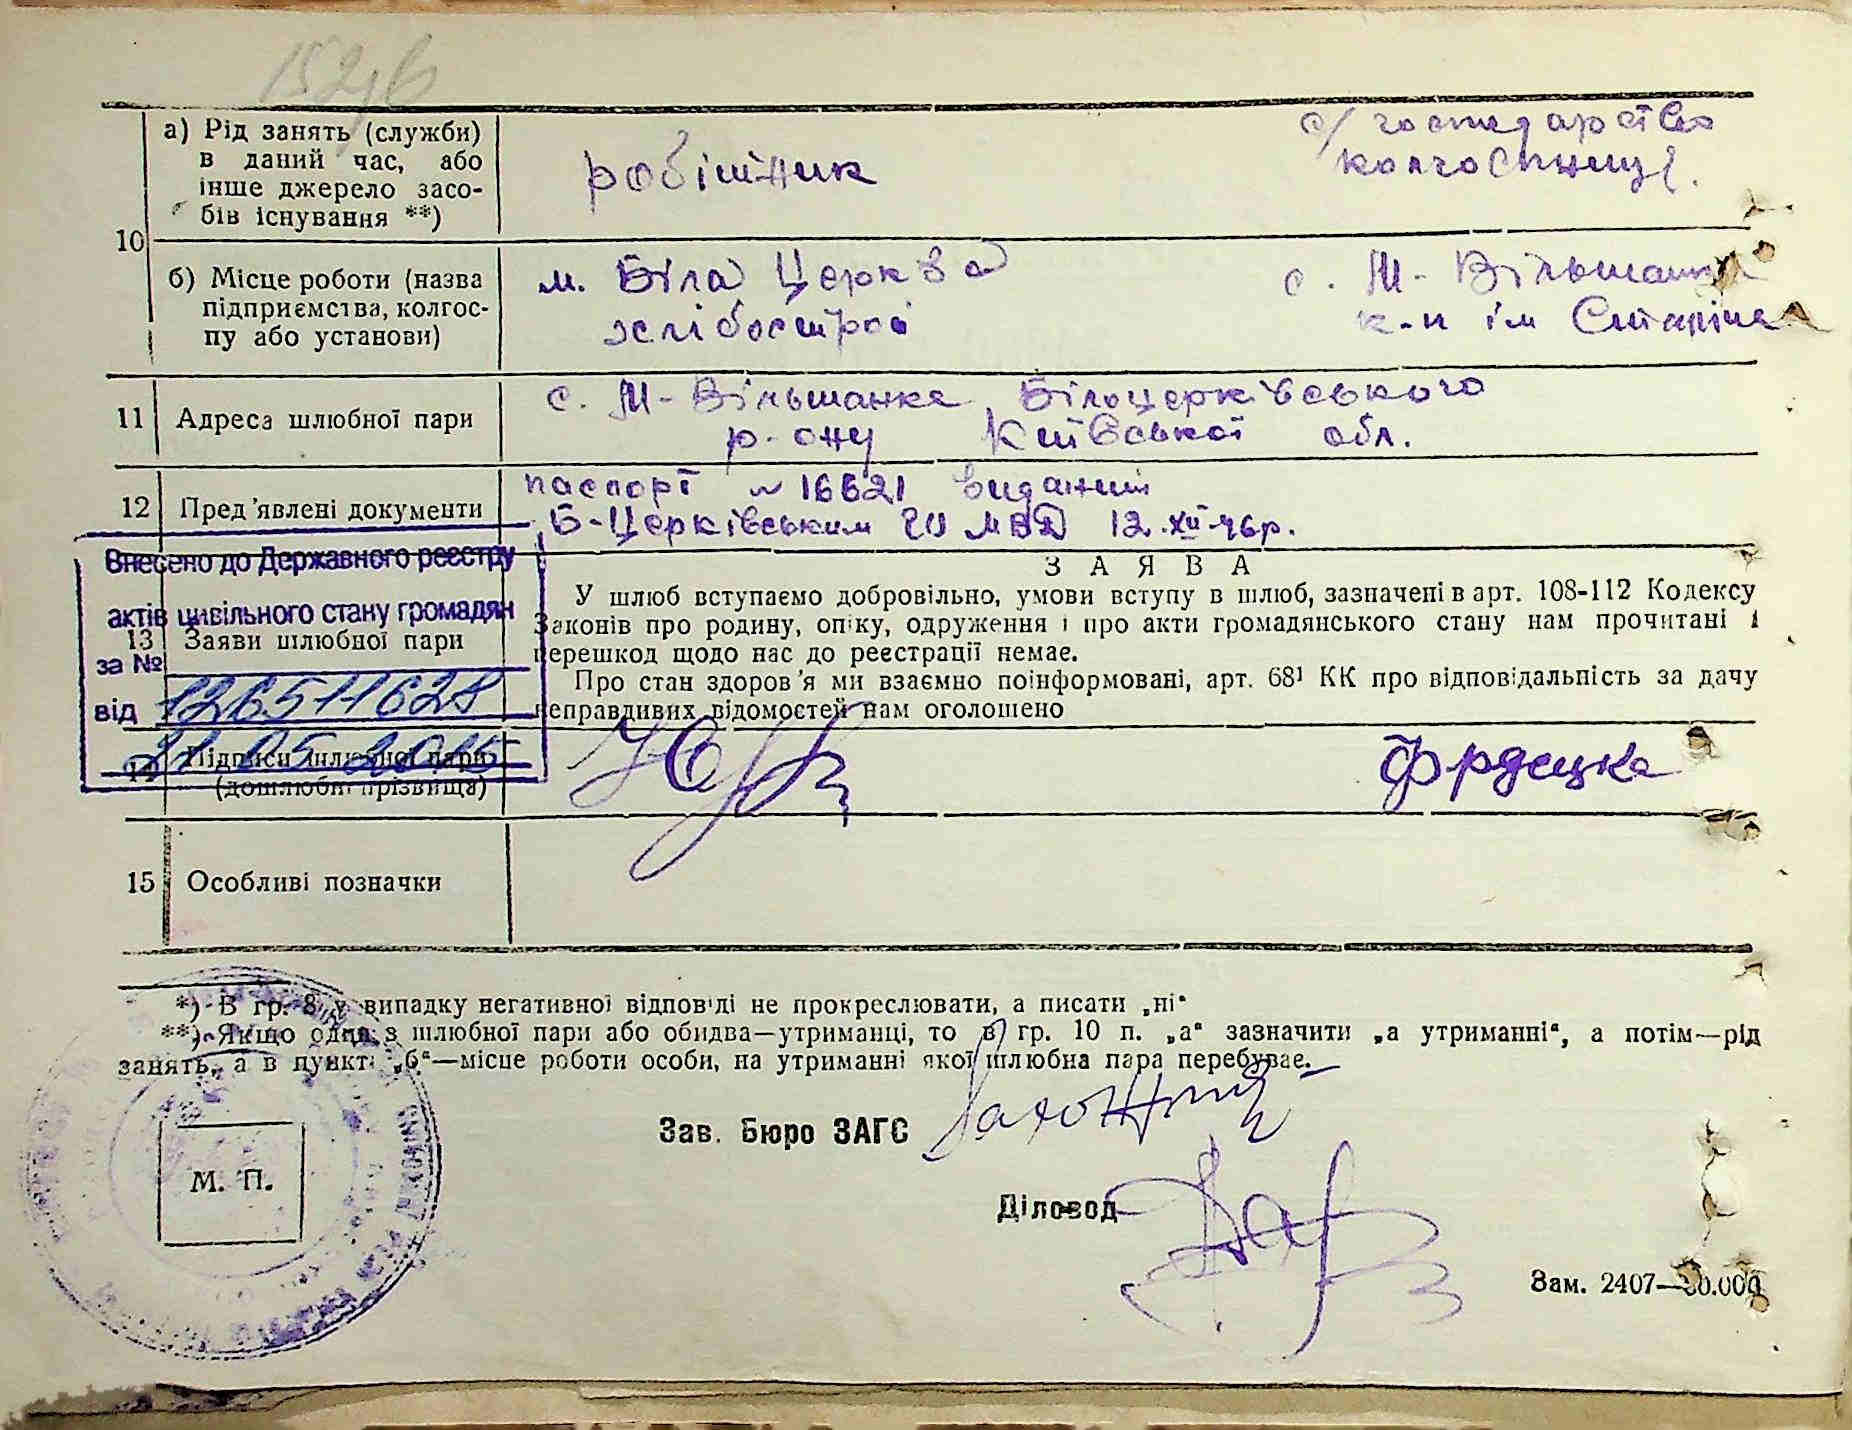 а) Рід занять (служби)
в даний час, або
інше джерело засо-
бів існування **)
робітник
с/господарство
колгоспниці.
10
б) Місце роботи (назва
підприємства, колгос-
пу або установи)
м. Біла Церква
хлібострой
с. М-Вільшанка
к-п ім Сталіна
11 Адреса шлюбної пари
с. М-Вільшанка Білоцерківського
р-ону Київської обл.
12 Пред'явлені документи
паспорт № 16621 виданий
Б-Церківським ГО МВД 12.XII-46р.
Внесено до Державного реєстру
актів цивільного стану громадян
за №
126511628
від
13 Заяви шлюбної пари
ЗАЯВА
У шлюб вступаємо добровільно, умови вступу в шлюб, зазначені в арт. 108-112 Кодексу
Законів про родину, опіку, одруження і про акти громадянського стану нам прочитані і
перешкод щодо нас до реєстрації немає.
Про стан здоров'я ми взаємно поінформовані, арт. 68¹ КК про відповідальність за дачу
неправдивих відомостей нам оголошено
14 Підписи шлюбної пари
(дошлюбні прізвища)
15 Особливі позначки
*) В гр. 8 у випадку негативної відповіді не прокреслювати, а писати „ні“
**) Якщо один з шлюбної пари або обидва—утриманці, то в гр. 10 п. „а“ зазначити „а утриманні“, а потім—рід
занять, а в пункті „б“—місце роботи особи, на утриманні якої шлюбна пара перебуває.
Зав. Бюро ЗАГС
М. П.
Діловод
Зам. 2407—